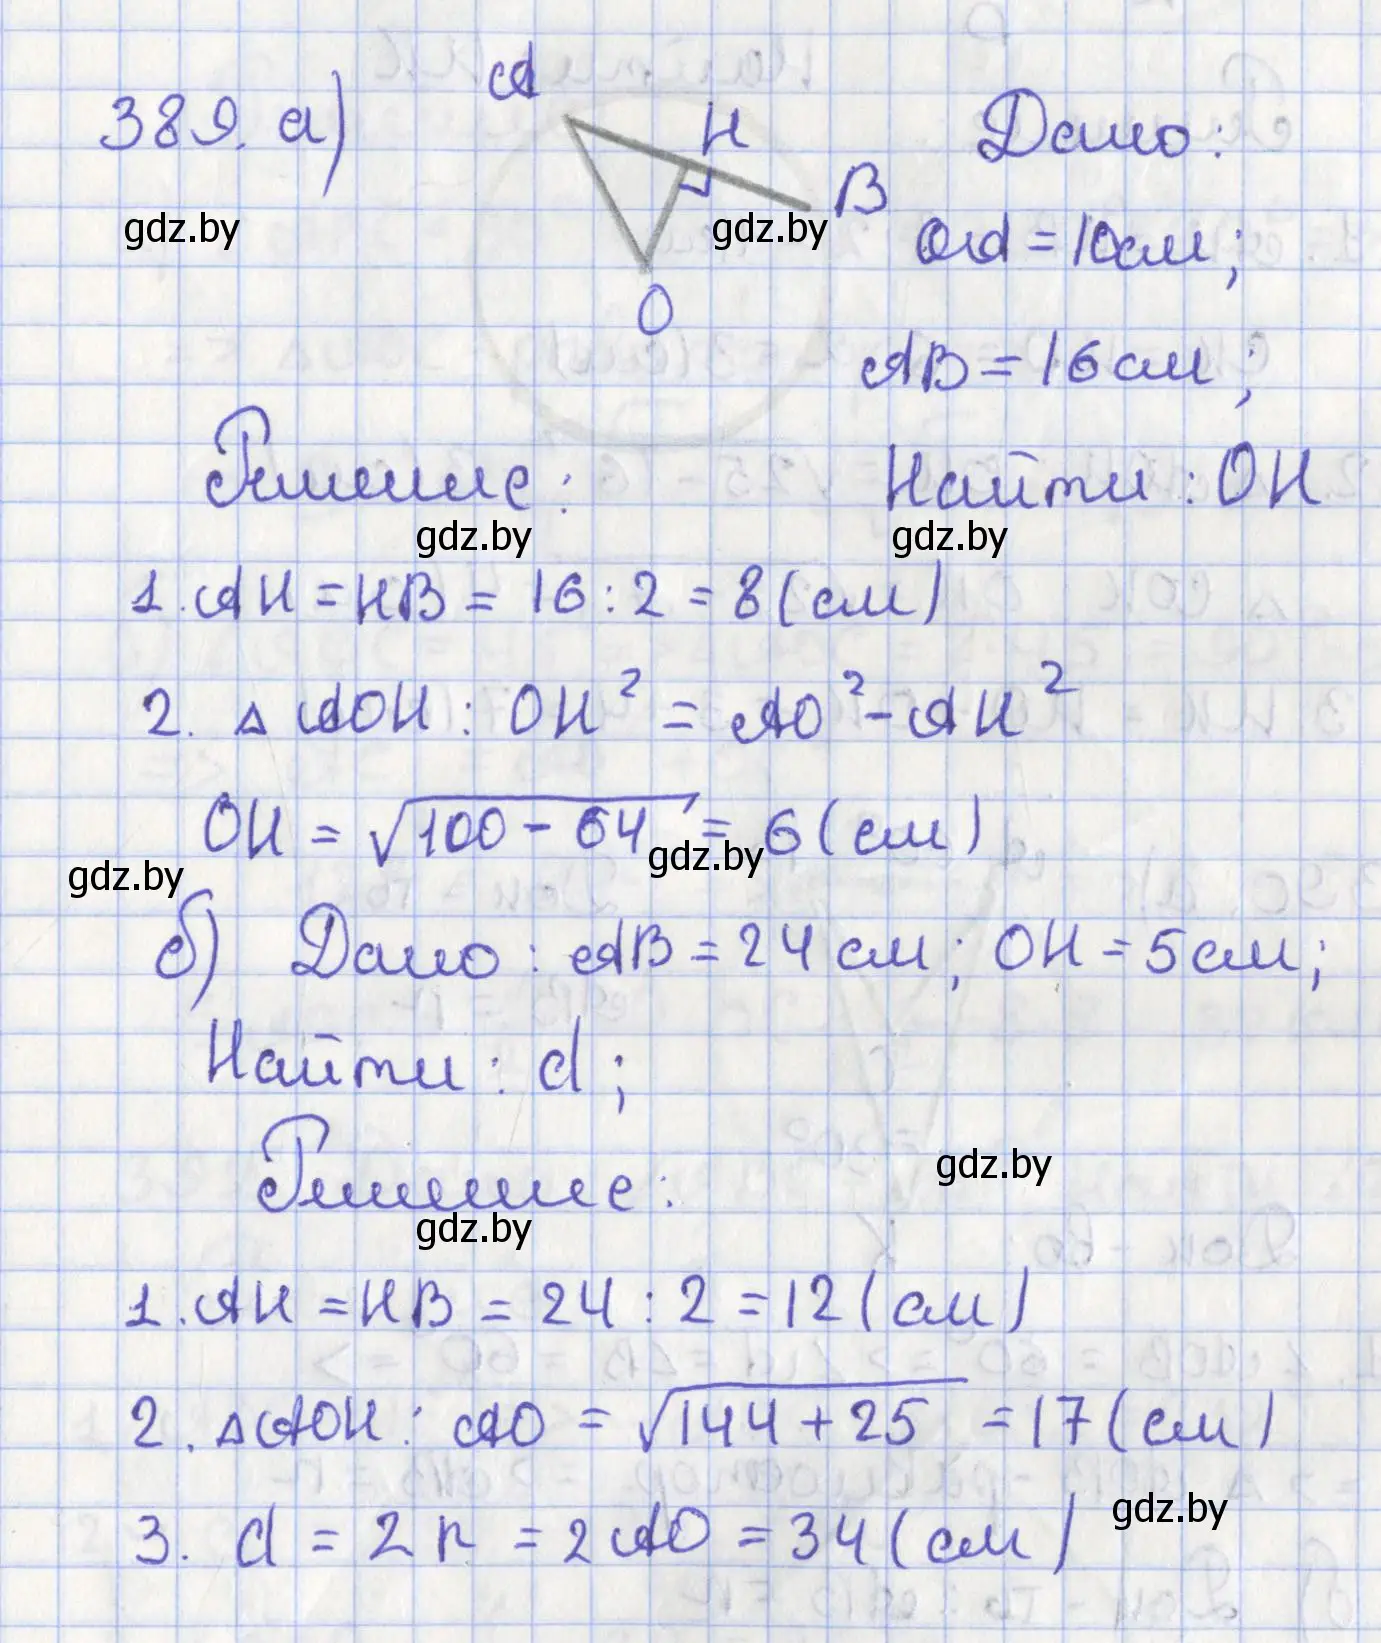 389. а)
A
H
B
O
Дано:
OA = 10см;
AB = 16см;
Решение:
Найти: OH
1. AH = HB = 16 : 2 = 8 (см)
2. △ AOH : OH² = AO² - AH²
OH = √100 - 64 = 6 (см)
б) Дано: AB = 24 см; OH = 5см;
Найти: d;
Решение:
1. AH = HB = 24 : 2 = 12 (см)
2. △AOH: AO = √144 + 25 = 17 (см)
3. d = 2r = 2AO = 34 (см)
gdz.by
gdz.by
gdz.by
gdz.by
gdz.by
gdz.by
gdz.by
gdz.by
gdz.by